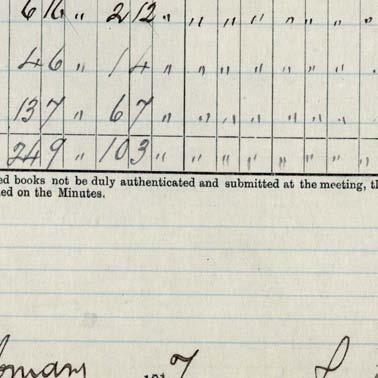 616 " 212 " " " " " " " "
46 " 14 " " " " " " "
137 " 67 " " " " " " "
249 " 103 " " " " " " "
ed books not be duly authenticated and submitted at the meeting, th
ed on the Minutes.
7